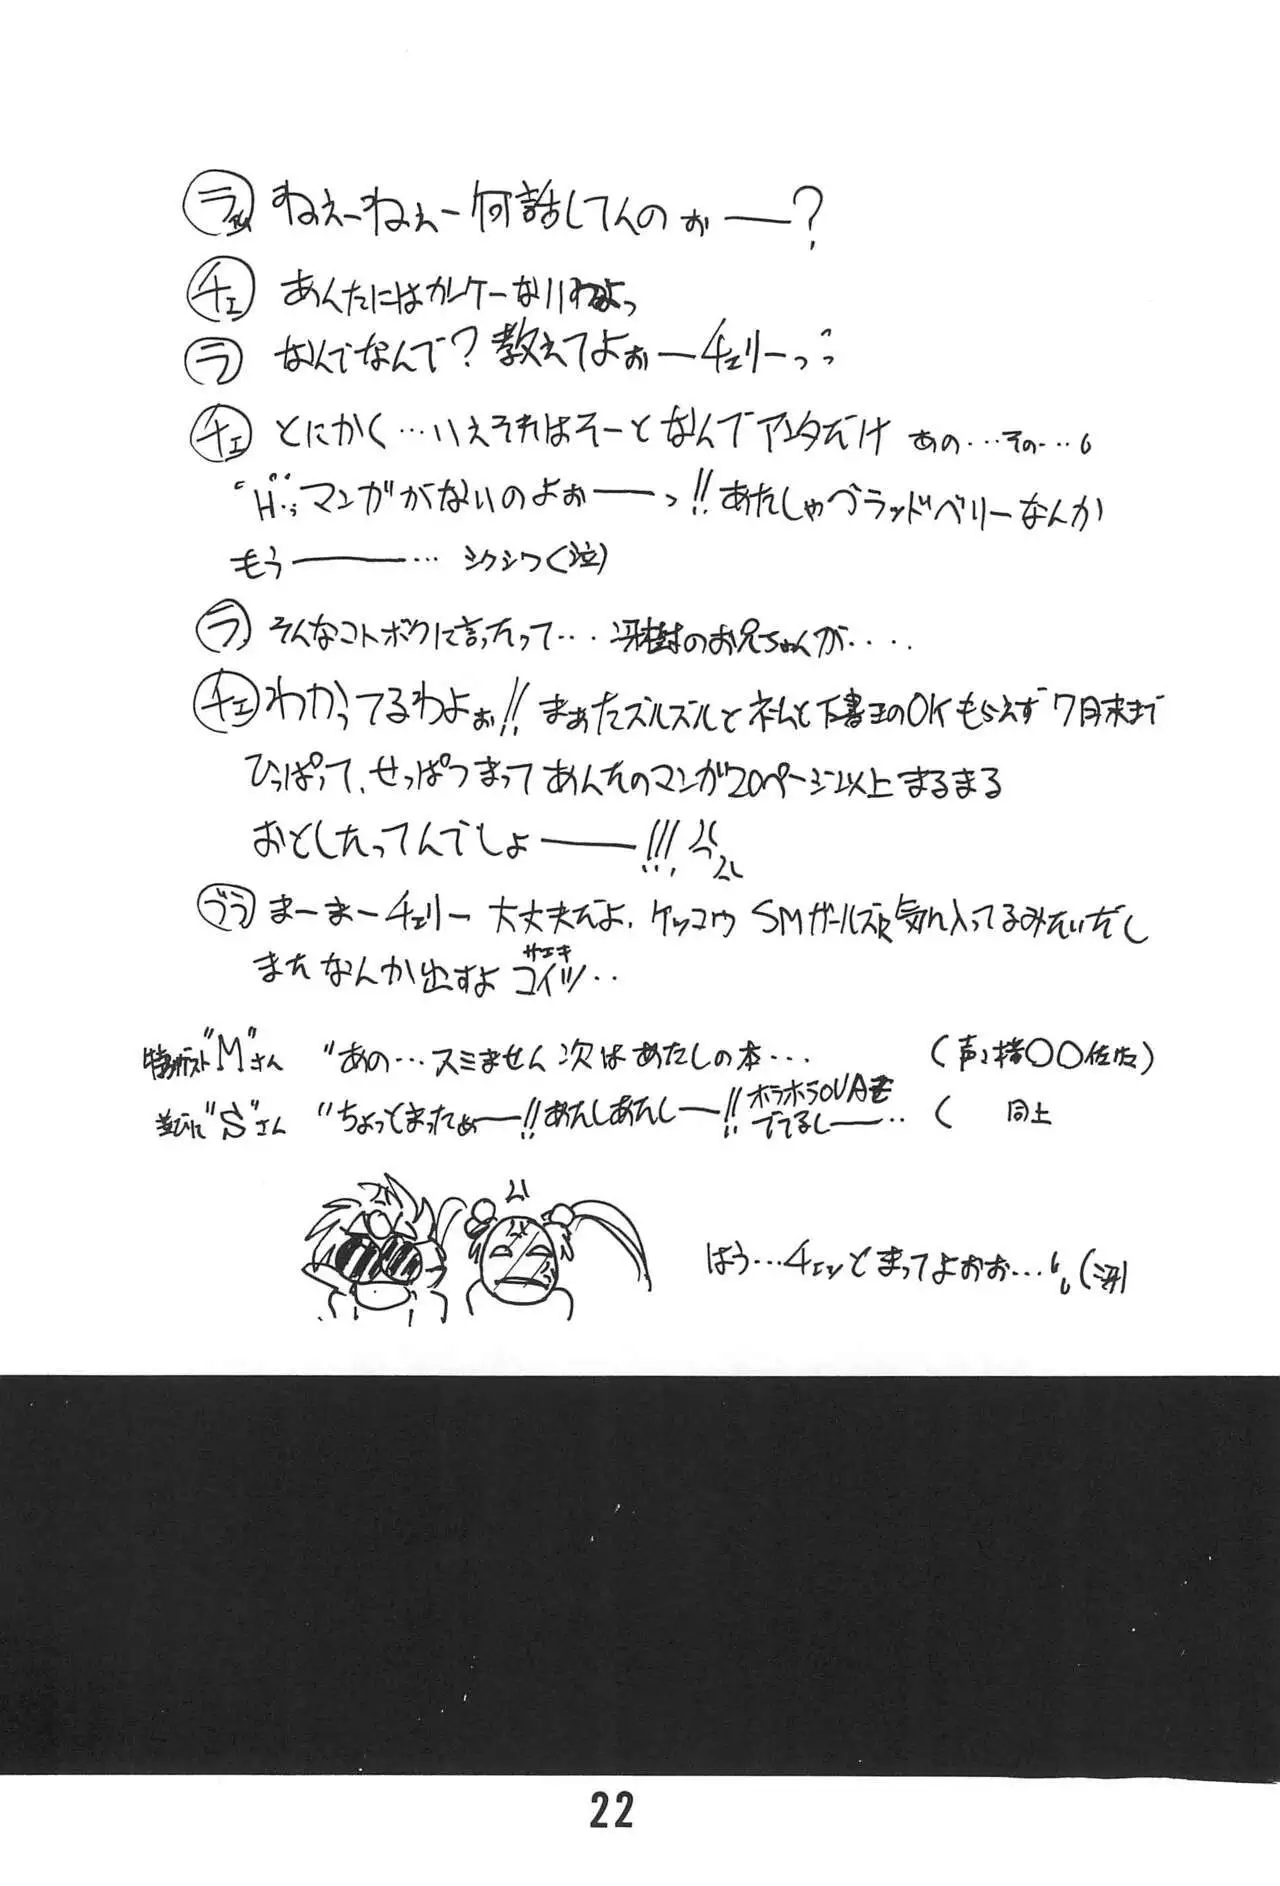 ラム ねぇーねぇー何話してんのぉー?
チェ あんたにはカンケーないわよっ
ラ なんでなんで?教えてよぉーチェリーっ
チェ とにかく…いえそれはそーとなんでアンタだけ あの…その…
"H"マンガがないのよぉーっ!!あたしゃブラッドベリーなんか
もうー… シクシク(泣)
ラ そんなコトボクに言ったって… 冴樹のお兄ちゃんが‥‥
チェ わかってるわよぉ!!まぁたズルズルとネームと下書王のOKもらえず7月末まで
ひっぱって、せっぱつまってあんたのマンガ20ページ以上まるまる
おとしたってんでしょー!!!
ブラ まーまーチェリー 大丈夫だよ、ケッコウSMガールズに気に入ってるみたいだし
またなんか出すよ コイツ‥
サエキ
特別ゲスト"M"さん "あの…スミません次はあたしの本… (声:緒〇〇佐
並びに"S"さん "ちょっとまったぁー!!あたしあたしー!!ホラホラOVAも
でてるしー‥ ( 同上
はう…チェッとまってよぉお… (冴
22